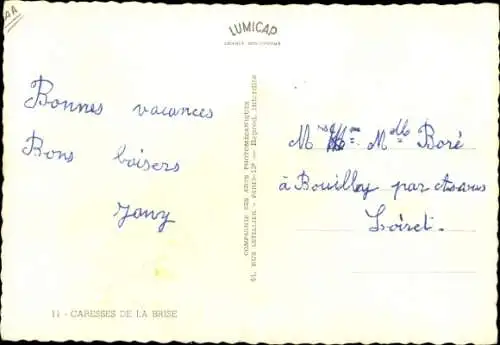 AR
LUMICAP
Bonnes vacances
Bons baisers
Jany
COMPAGNIE DES ARTS PHOTOMÉCANIQUES
44, RUE LETELLIER - PARIS-15e - Reprod. interdite
Mrs Mme Mlle Boré
à Bouilly par
Loiret.
11 - CARESSES DE LA BRISE